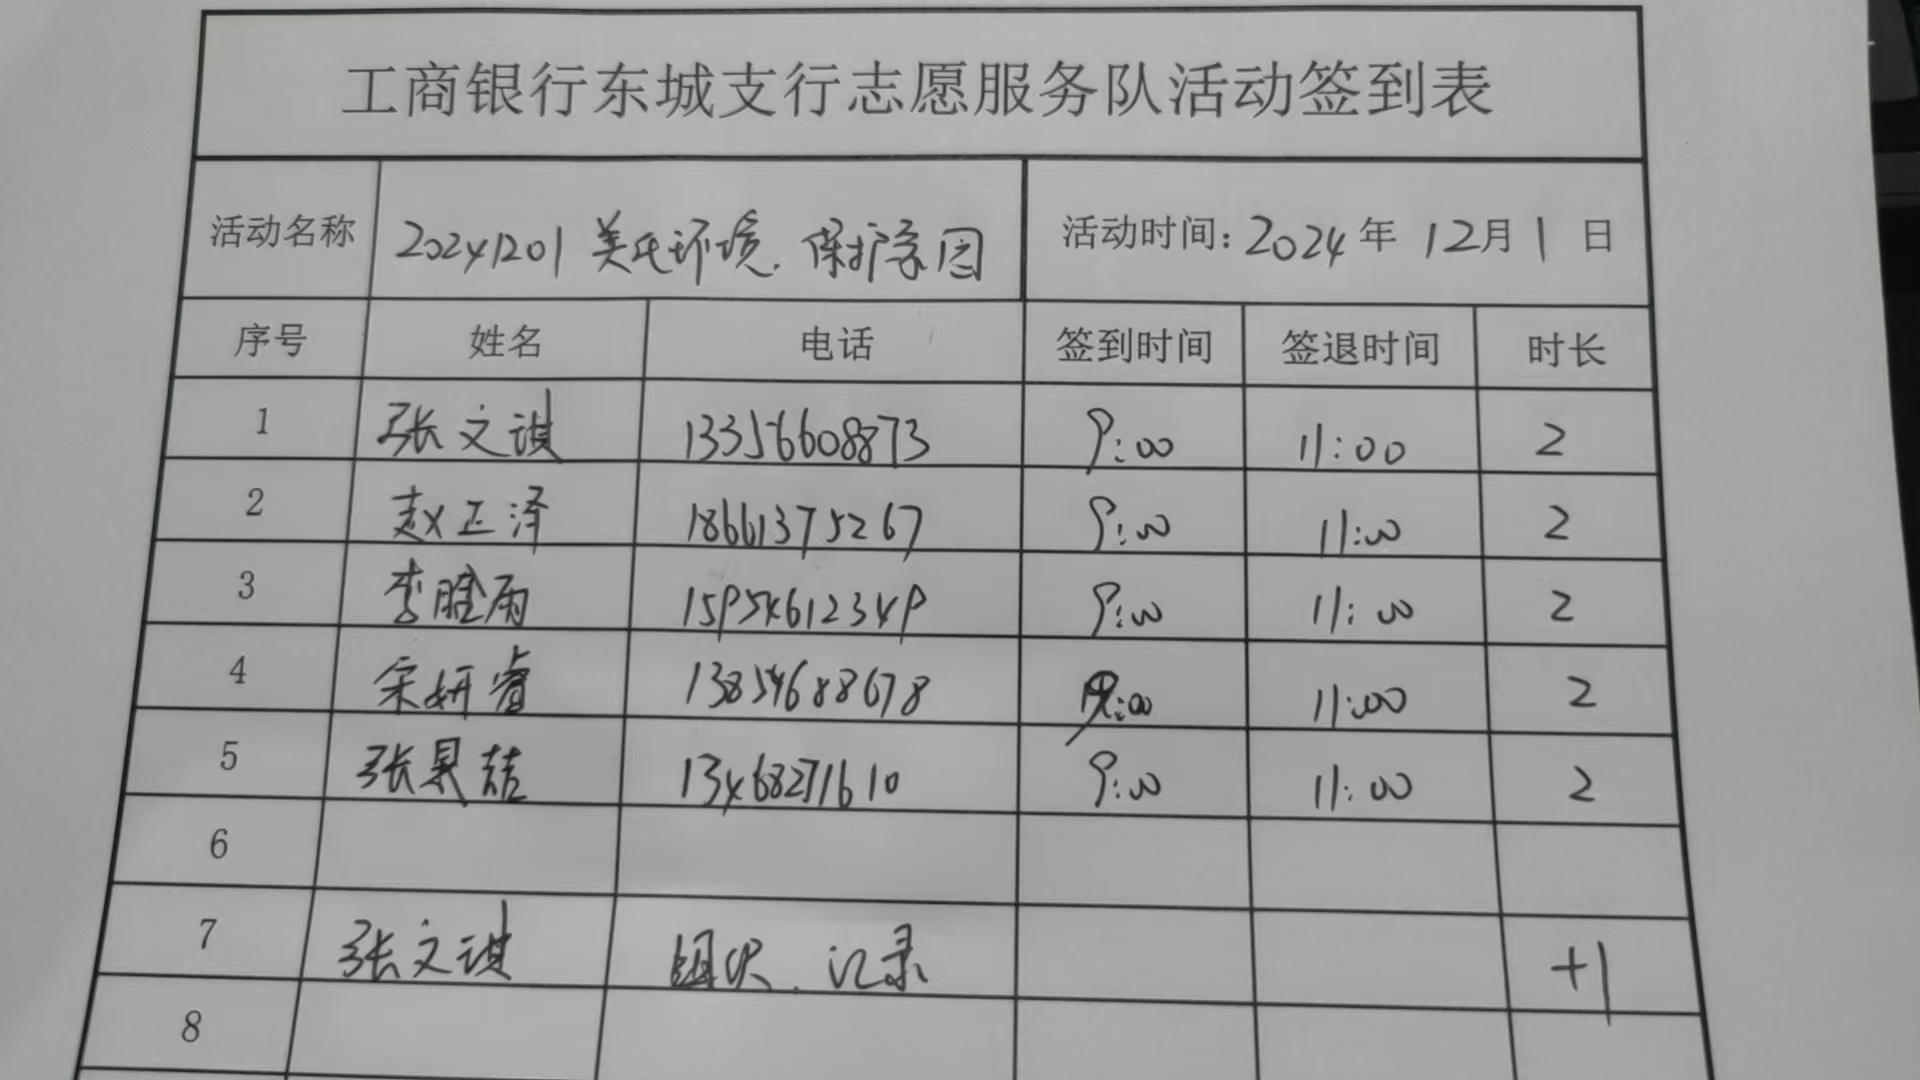 工商银行东城支行志愿服务队活动签到表
活动名称 20241201 美化环境、保护家园 活动时间：2024年 12月1日
序号 姓名 电话 签到时间 签退时间 时长
1 张文祺 13356608873 9:00 11:00 2
2 赵正泽 18661375267 9:00 11:00 2
3 李 雨 15954612349 9:00 11:00 2
4 宋妍睿 13854688678 9:00 11:00 2
5 张昊喆 13468271610 9:00 11:00 2
6
7 张文祺 组织、记录 +1
8